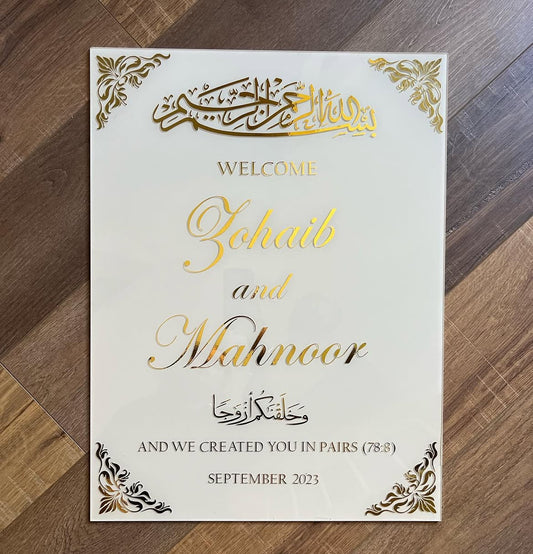 بسم الله الرحمن الرحيم
WELCOME
Zohaib
and
Mahnoor
وَخَلَقْنَكُم أَزْوَجًا
AND WE CREATED YOU IN PAIRS (78:8)
SEPTEMBER 2023